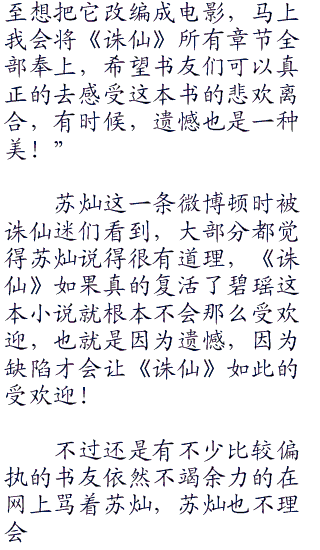 至想把它改编成电影，马上
我会将《诛仙》所有章节全
部奉上，希望书友们可以真
正的去感受这本书的悲欢离
合，有时候，遗憾也是一种
美！”
苏灿这一条微博顿时被
诛仙迷们看到，大部分都觉
得苏灿说得很有道理，《诛
仙》如果真的复活了碧瑶这
本小说就根本不会那么受欢
迎，也就是因为遗憾，因为
缺陷才会让《诛仙》如此的
受欢迎！
不过还是有不少比较偏
执的书友依然不竭余力的在
网上骂着苏灿，苏灿也不理
会